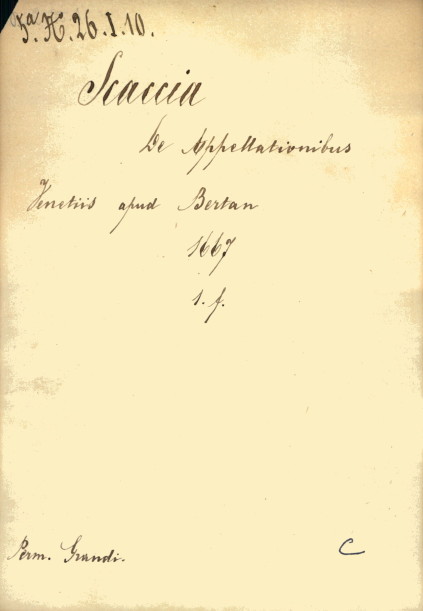 5.a H. 26. I. 10.
Scaccia
De Appellationibus
Venetiis apud Bertan
1667
1. f.
Perm. Grandi.
C